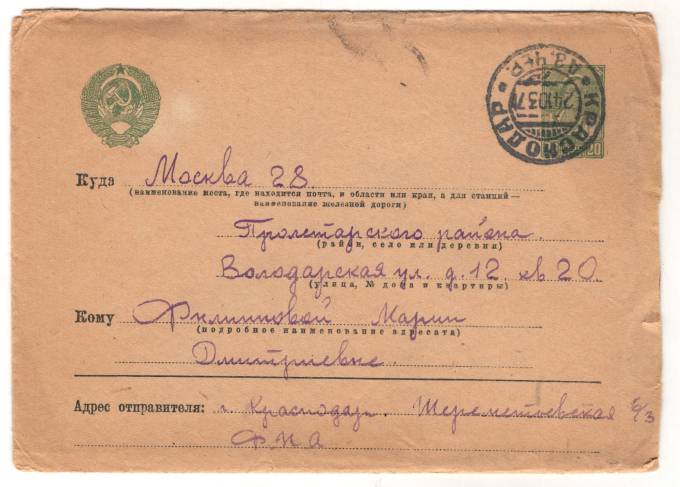 КРАСНОДАР
24.10.37
20
Куда Москва 28.
(наименование места, где находится почта, и области или края, а для станций—
наименование железной дороги)
Пролетарского района.
(район, село или деревня)
Володарская ул. д. 12. кв 20.
(улица, № дома и квартиры)
Кому Филипповой Марии
(подробное наименование адресата)
Дмитриевне.
Адрес отправителя: г. Краснодар. Шереметьевская